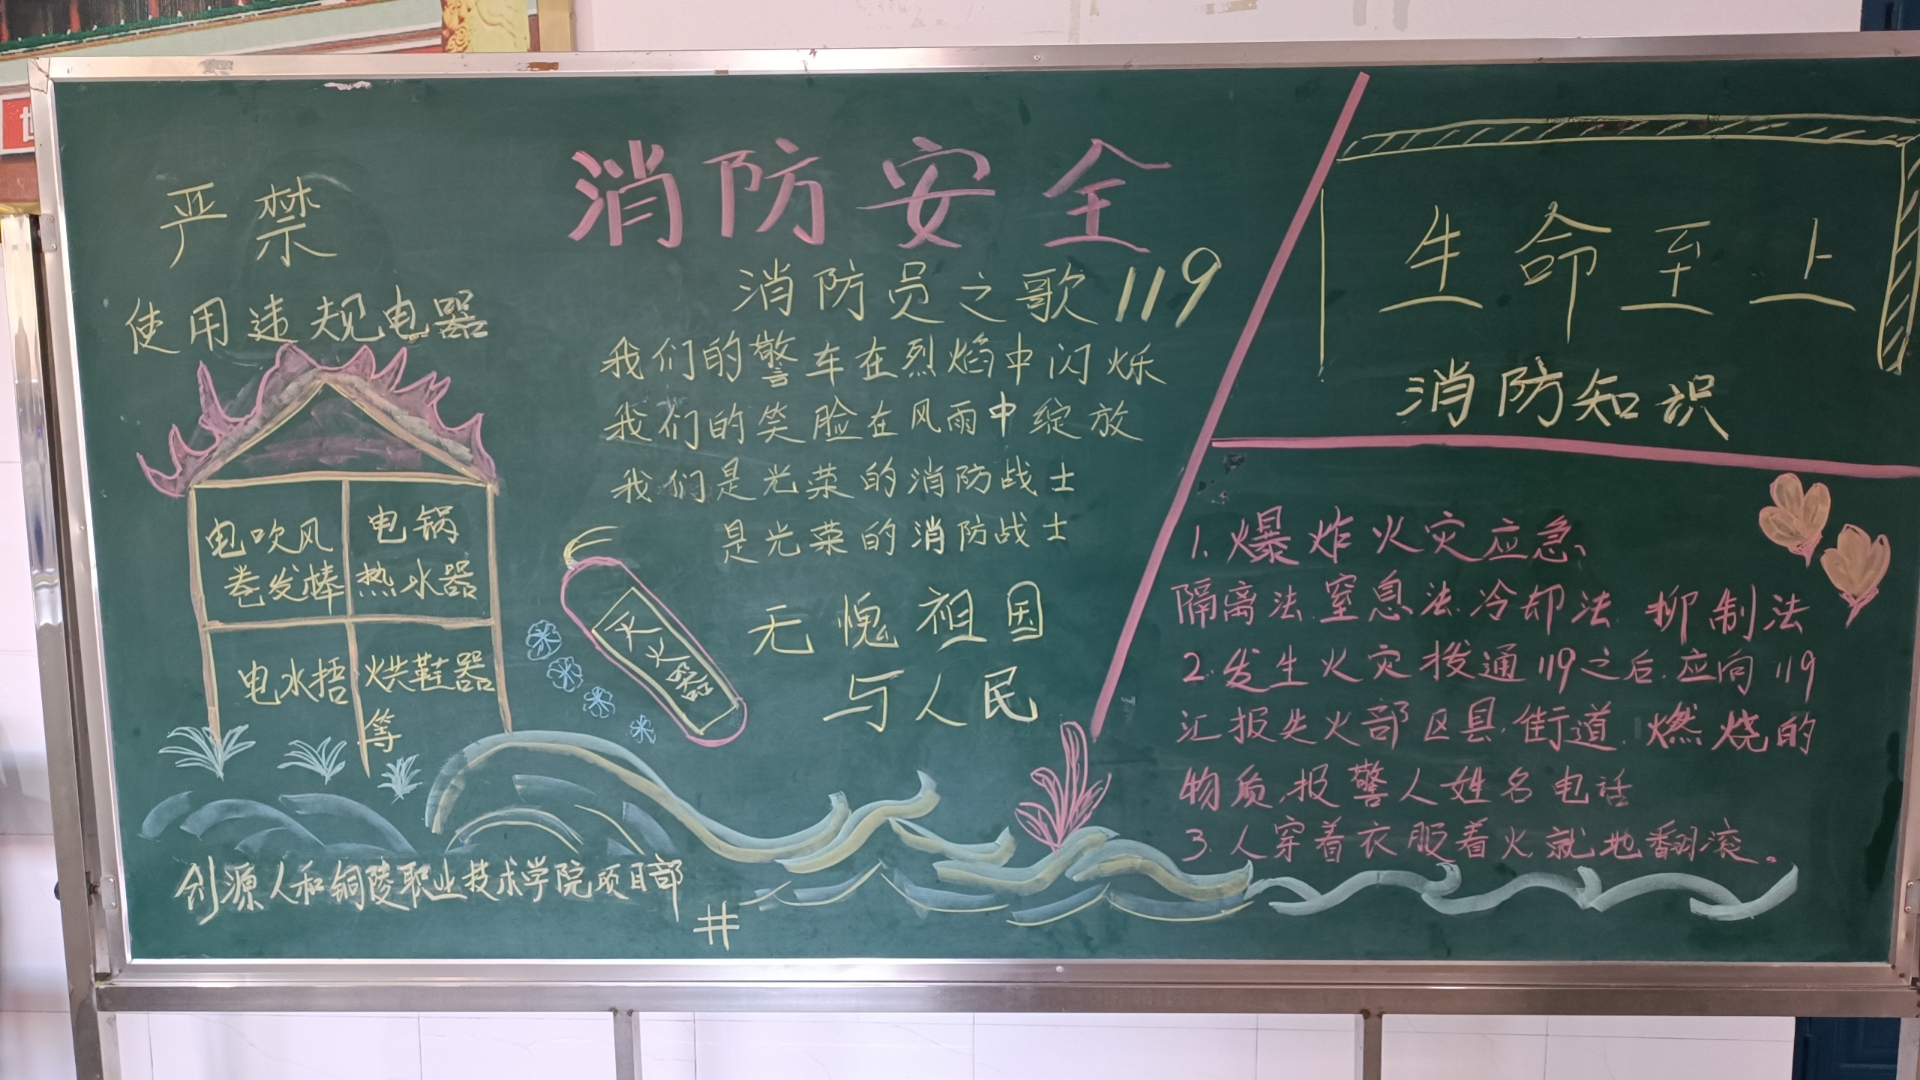 严禁
使用违规电器
电吹风
卷发棒
电锅
热水器
电水捂
烘鞋器
等
消防安全
消防员之歌119
我们的警车在烈焰中闪烁
我们的笑脸在风雨中绽放
我们是光荣的消防战士
是光荣的消防战士
无愧祖国
与人民
灭火器
生命至上
消防知识
1.爆炸火灾应急、
隔离法.窒息法.冷却法.抑制法
2.发生火灾拨通119之后.应向119
汇报失火部区县.街道.燃烧的
物质.报警人姓名电话
3.人穿着衣服着火就地翻滚。
创源人和铜陵职业技术学院项目部